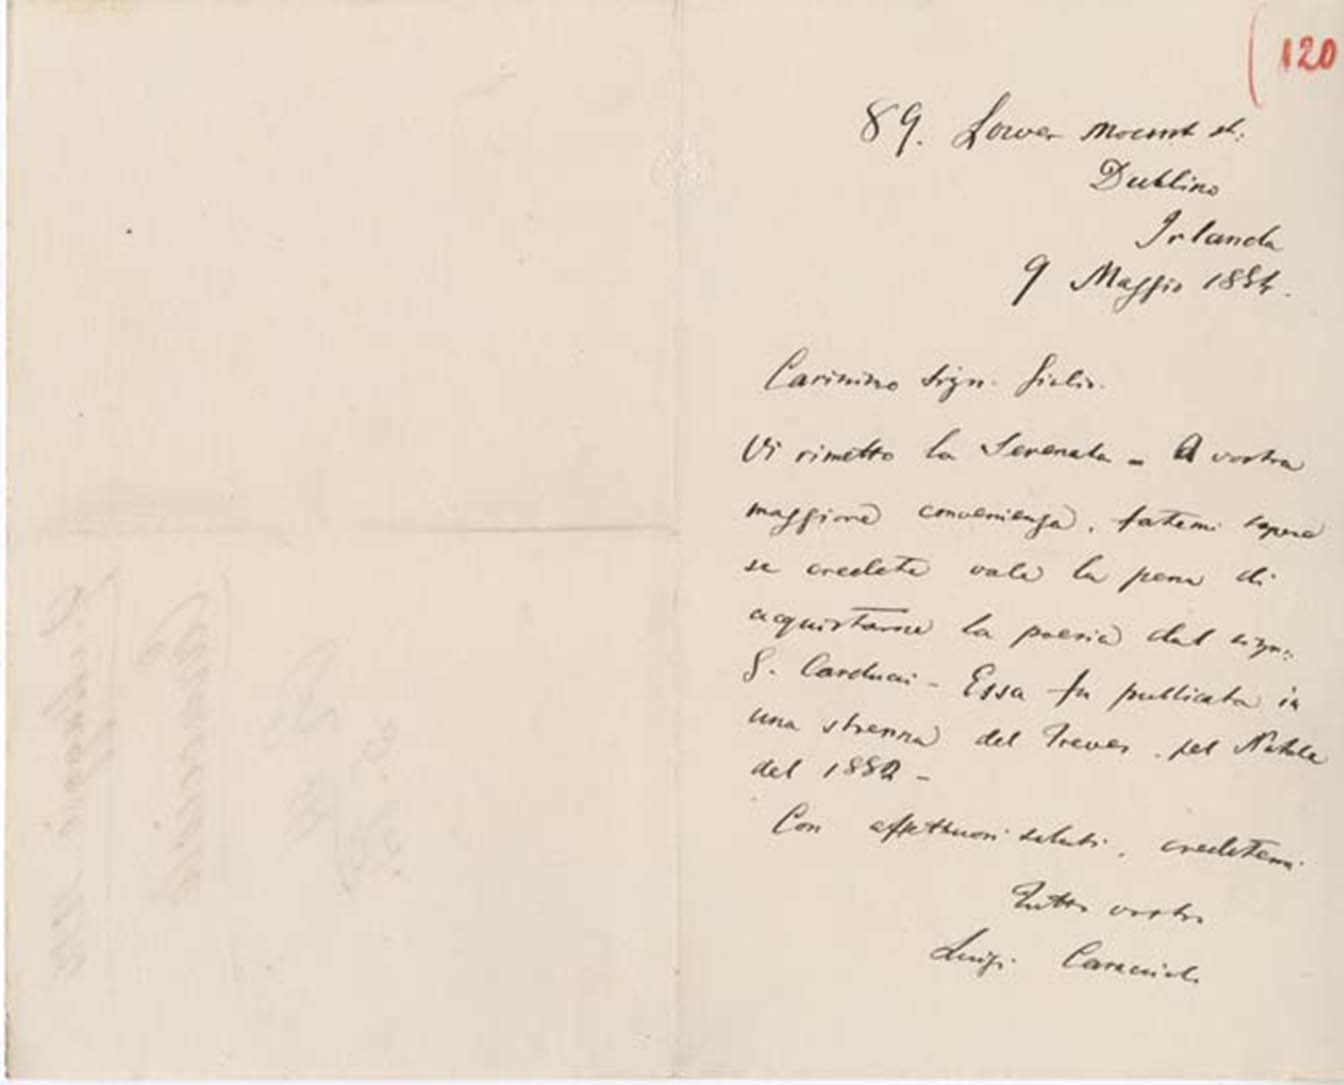 120
89. Lower Mount st:
Dublino
Irlanda
9 Maggio 1884.
Carissimo Sign. Giulio.
Vi rimetto la Serenata - A vostra
maggiore convenienza, fatemi sapere
se credete vale la pena di
acquistarne la poesia dal sign:
G. Carducci - Essa fu pubblicata in
una strenna del Treves, pel Natale
del 1882 -
Con affettuosi saluti, credetemi
Tutto vostro
Luigi Caracciolo